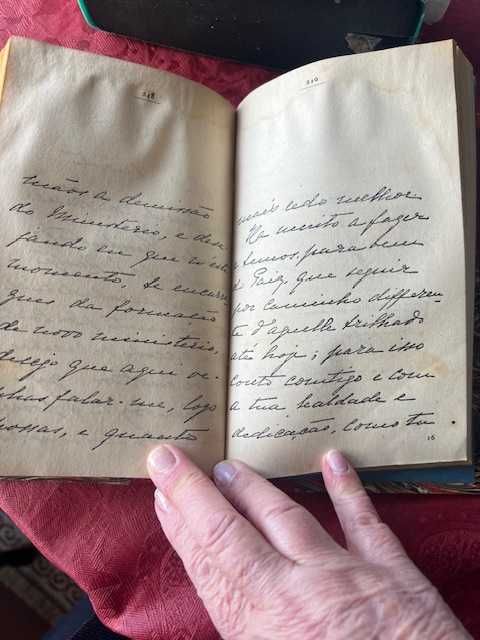 248
mãos a demissão
do Ministerio, e dese
jando eu que n'este
momento, te encarre
gues da formação
de novo ministerio,
desejo que aqui ve
nhas fallar-me, logo
possas, e quanto
249
mais cedo melhor
Ha muito a fazer
e temos, para bem
do Paiz, que seguir
por caminho differen
te d'aquelle trilhado
até hoje; para isso
conto comtigo e com
a tua lealdade e
dedicação, como tu
16